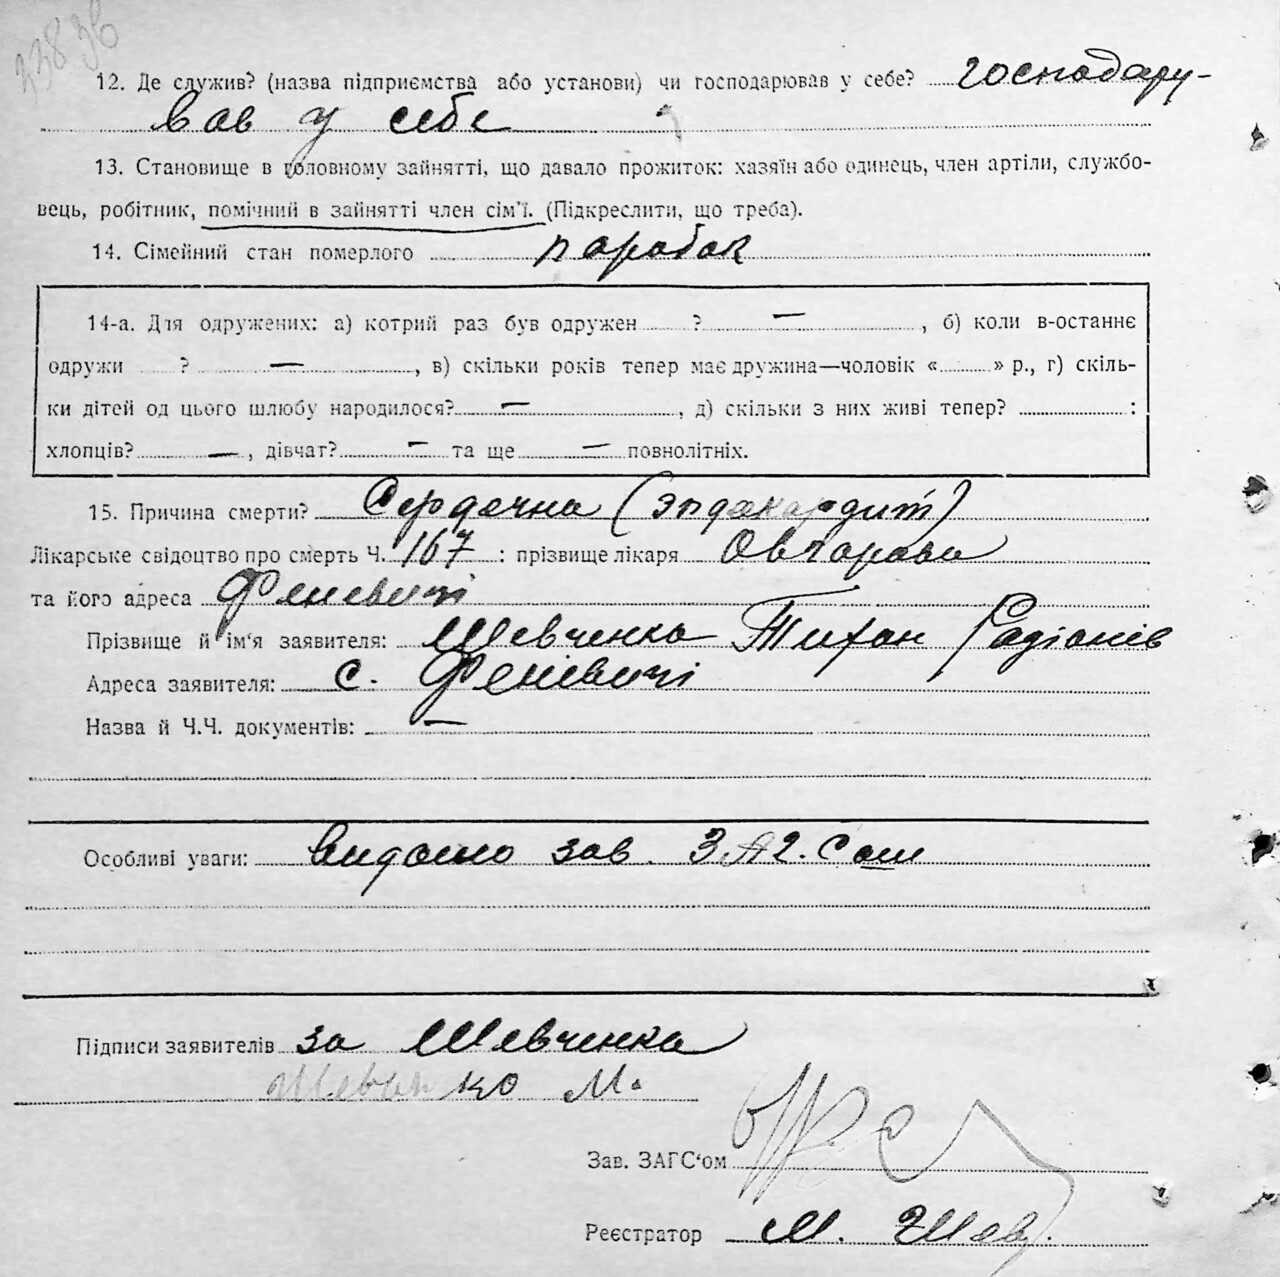 33836
12. Де служив? (назва підприємства або установи) чи господарював у себе? господару-
вав у себе
13. Становище в головному зайнятті, що давало прожиток: хазяїн або одинець, член артіли, службо-
вець, робітник, помічний в зайнятті член сім'ї. (Підкреслити, що треба).
14. Сімейний стан померлого парубок
14-а. Для одружених: а) котрий раз був одружен ? — , б) коли в-останнє
одружи ? — , в) скільки років тепер має дружина—чоловік « » р., г) скіль-
ки дітей од цього шлюбу народилося? — , д) скільки з них живі тепер? :
хлопців? — , дівчат? — та ще — повнолітніх.
15. Причина смерти? Сердечна (эндокардит)
Лікарське свідоцтво про смерть Ч. 167 : прізвище лікаря Овчарова
та його адреса Феневичі
Прізвище й ім'я заявителя: Шевченко Тихон Радіонів
Адреса заявителя: с. Феневичі
Назва й Ч.Ч. документів: —
Особливі уваги: Видано зав.
Підписи заявителів за Шевченка
Шевченко М.
Зав. ЗАГС'ом
Реєстратор М. Шев.